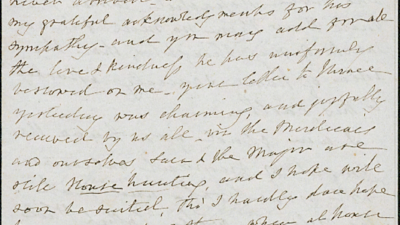 my grateful acknowledgments for his
sympathy - and you may add for all
the love & kindness he has uniformly
bestowed on me - your letter to Horace
yesterday was charming, and joyfully
received by us all - 
and ourselves & the Major are
still House hunting, and I hope will
soon be suited, tho' I hardly dare hope